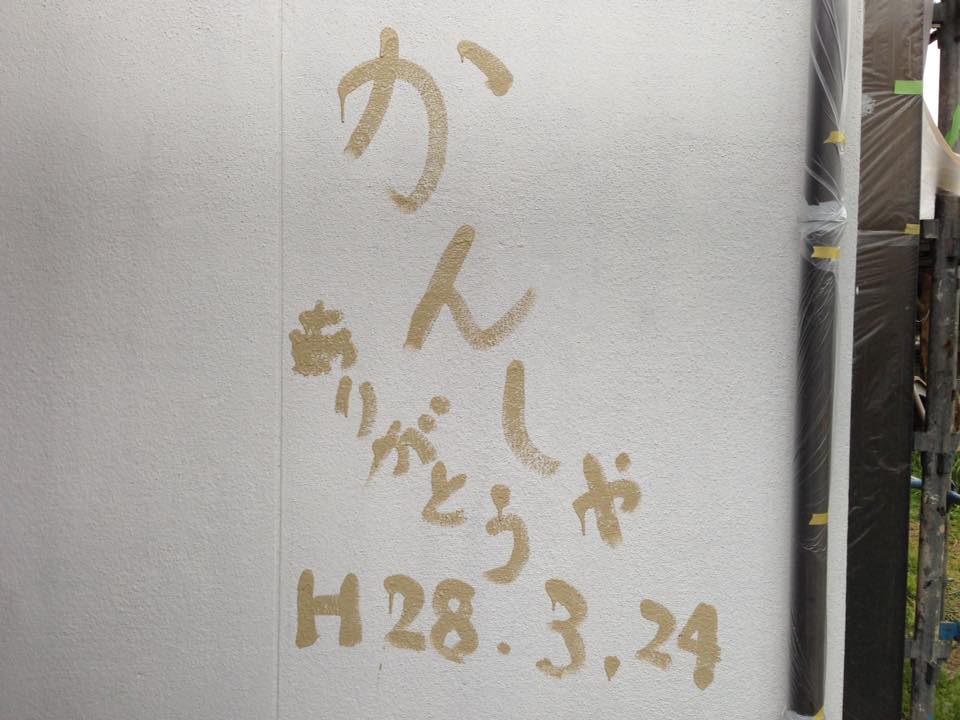 かんしゃ
ありがとう
H28.3.24